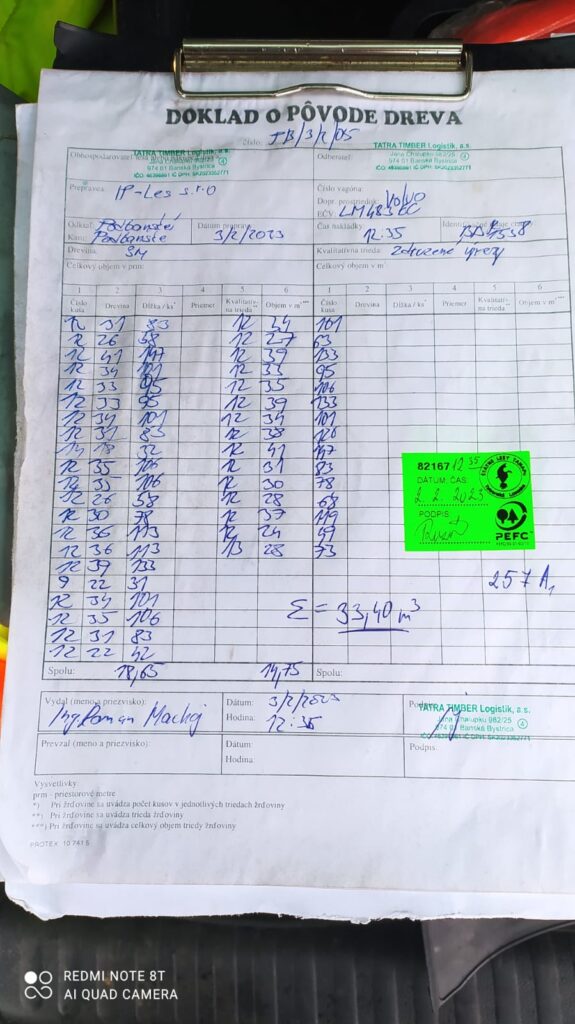 DOKLAD O PÔVODE DREVA
číslo: JB/3/2/05
TATRA TIMBER Logistik, a.s.
Jána Chalupku 982/25
974 01 Banská Bystrica
Odberateľ:
TATRA TIMBER Logistik, a.s.
Jána Chalupku 982/25
974 01 Banská Bystrica
Prepravca: IP-Les s.r.o
Číslo vagóna:
Dopr. prostriedok: VOLVO
EČV: LM483EC
Odkiaľ: Podbanské
Kam: Podbanské
Dátum prepravy 3/2/2023
Čas nakládky: 12.35
Drevina: SM
Kvalitatívna trieda: Združené výrezy
Celkový objem v prm:
Celkový objem v m³
1 2 3 4 5 6 1 2 3 4 5 6
Číslo kusa Drevina Dĺžka / ks* Priemer Kvalitatív- na trieda** Objem v m³*** Číslo kusa Drevina Dĺžka / ks* Priemer Kvalitatív- na trieda** Objem v m³***
12 31 83 12 34 101
12 26 58 12 27 63
12 41 147 12 39 133
12 34 101 12 33 95
12 33 95 12 35 106
12 33 95 12 39 133
12 34 101 12 34 101
12 31 83 12 38 126
14 18 32 12 41 147
12 35 106 12 31 83
12 35 106 12 30 78
12 26 58 12 28 68
12 30 78 12 37 119
12 36 113 12 24 49
12 36 113 13 28 73
12 39 133
9 22 31
12 34 101
12 35 106
12 31 83
12 22 42
82167 12 35
DÁTUM, ČAS
2. 2. 2023
PODPIS
PEFC
257 A,
Σ = 33,40 m³
Spolu: 18,65 14,75 Spolu:
Vydal (meno a priezvisko):
Ing Roman Machaj
Dátum: 3/2/2023
Hodina: 12:35
Podpis
TATRA TIMBER Logistik, a.s.
Jána Chalupku 982/25
974 01 Banská Bystrica
Prevzal (meno a priezvisko):
Dátum
Hodina:
Podpis
Vysvetlivky
prm - priestorové metre
*) Pri žrďovine sa uvádza počet kusov v jednotlivých triedach žrďoviny
**) Pri žrďovine sa uvádza trieda žrďoviny
***) Pri žrďovine sa uvádza celkový objem triedy žrďoviny
PROTEX 10 741 5
REDMI NOTE 8T
AI QUAD CAMERA